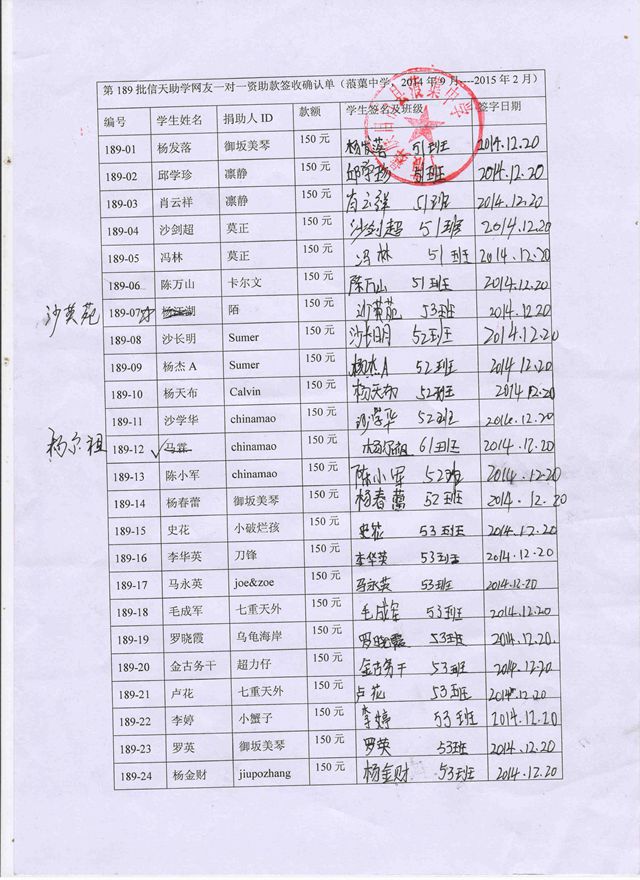 第 189 批信天助学网友一对一资助款签收确认单（蒗蕖中学 2014 年 9 月----2015 年 2 月）
编号 学生姓名 捐助人 ID 款额 学生签名及班级 签字日期
189-01 杨发落 御坂美琴 150 元 杨发落 51班 2014.12.20
189-02 邱学珍 凛静 150 元 邱学珍 51班 2014.12.20
189-03 肖云祥 凛静 150 元 肖云祥 51班 2014.12.20
189-04 沙剑超 莫正 150 元 沙剑超 51班 2014.12.20
189-05 冯林 莫正 150 元 冯林 51班 2014.12.20
189-06 陈万山 卡尔文 150 元 陈万山 51班 2014.12.20
沙英苑 189-07 杨江湖 陌 150 元 沙英苑 53班 2014.12.20
189-08 沙长明 Sumer 150 元 沙长明 52班 2014.12.20
189-09 杨杰 A Sumer 150 元 杨杰A 52班 2014.12.20
189-10 杨天布 Calvin 150 元 杨天布 52班 2014.12.20
189-11 沙学华 chinamao 150 元 沙学华 52班 2014.12.20
杨尔祖 189-12 ✓ 马霖 chinamao 150 元 杨尔祖 61班 2014.12.20
189-13 陈小军 chinamao 150 元 陈小军 52班 2014.12.20
189-14 杨春蕾 御坂美琴 150 元 杨春蕾 52班 2014.12.20
189-15 史花 小破烂孩 150 元 史花 53班 2014.12.20
189-16 李华英 刀锋 150 元 李华英 53班 2014.12.20
189-17 马永英 joe&zoe 150 元 马永英 53班 2014.12.20
189-18 毛成军 七重天外 150 元 毛成军 53班 2014.12.20
189-19 罗晓霞 乌龟海岸 150 元 罗晓霞 53班 2014.12.20.
189-20 金古务干 超力仔 150 元 金古务干 53班 2014.12.20
189-21 卢花 七重天外 150 元 卢花 53班 2014.12.20
189-22 李婷 小蟹子 150 元 李婷 53班 2014.12.20
189-23 罗英 御坂美琴 150 元 罗英 53班 2014.12.20
189-24 杨金财 jiupozhang 150 元 杨金财 53班 2014.12.20